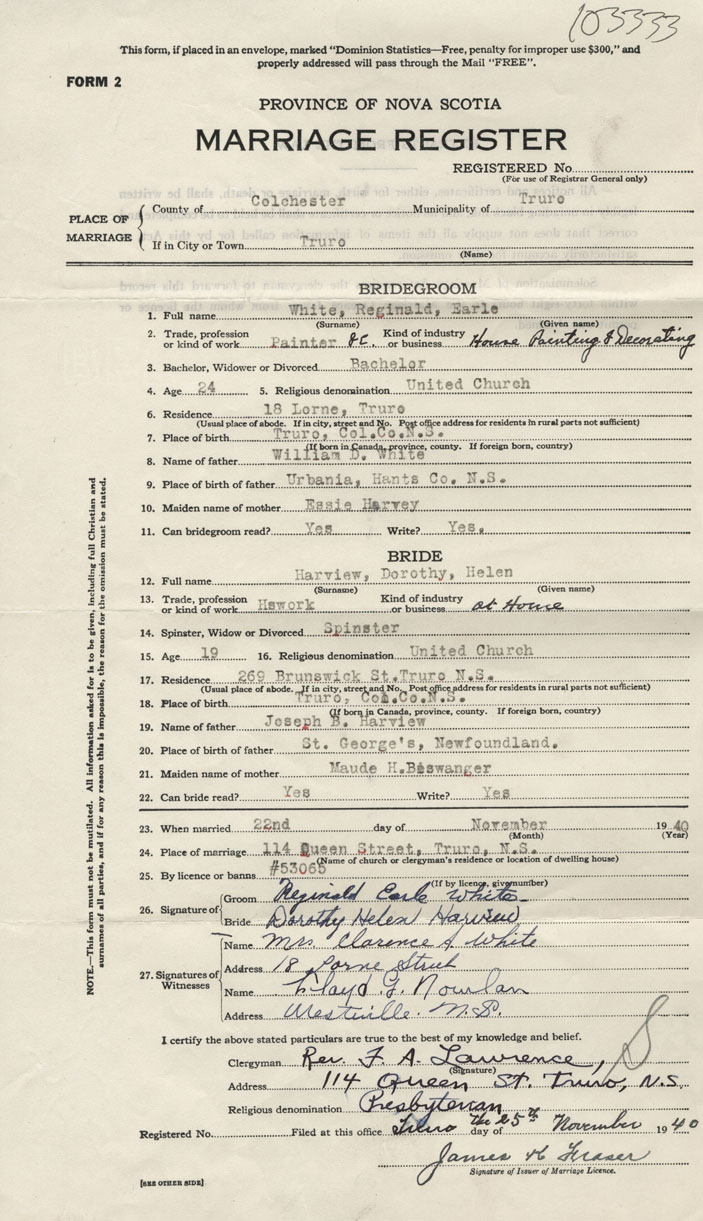 103333
This form, if placed in an envelope, marked “Dominion Statistics—Free, penalty for improper use $300,” and
properly addressed will pass through the Mail “FREE”.
FORM 2
PROVINCE OF NOVA SCOTIA
MARRIAGE REGISTER
REGISTERED No.
(For use of Registrar General only)
PLACE OF MARRIAGE
County of Colchester Municipality of Truro
If in City or Town Truro
(Name)
BRIDEGROOM
1. Full name White, Reginald, Earle
(Surname) (Given name)
2. Trade, profession or kind of work Painter &c. Kind of industry or business House Painting & Decorating
3. Bachelor, Widower or Divorced Bachelor
4. Age 24 5. Religious denomination United Church
6. Residence 18 Lorne, Truro
(Usual place of abode. If in city, street and No. Post office address for residents in rural parts not sufficient)
7. Place of birth Truro, Col.Co.N.S.
(If born in Canada, province, county. If foreign born, country)
8. Name of father William D. White
9. Place of birth of father Urbania, Hants Co. N.S.
10. Maiden name of mother Essie Harvey
11. Can bridegroom read? Yes Write? Yes.
BRIDE
12. Full name Harview, Dorothy, Helen
(Surname) (Given name)
13. Trade, profession or kind of work Hswork Kind of industry or business at Home
14. Spinster, Widow or Divorced Spinster
15. Age 19 16. Religious denomination United Church
17. Residence 269 Brunswick St.Truro N.S.
(Usual place of abode. If in city, street and No. Post office address for residents in rural parts not sufficient)
18. Place of birth Truro, Col.Co.N.S.
(If born in Canada, province, county. If foreign born, country)
19. Name of father Joseph B. Harview
20. Place of birth of father St. George's, Newfoundland.
21. Maiden name of mother Maude H.Biswanger
22. Can bride read? Yes Write? Yes
23. When married 22nd day of November 1940
(Month) (Year)
24. Place of marriage 114 Queen Street, Truro, N.S.
(Name of church or clergyman's residence or location of dwelling house)
25. By licence or banns #53065
(If by licence, give number)
26. Signature of Groom Reginald Earle White
Bride Dorothy Helen Harview
27. Signatures of Witnesses
Name Mrs Clarence A. White
Address 18 Lorne Street
Name Lloyd G. Nowlan
Address Westville. N.S.
I certify the above stated particulars are true to the best of my knowledge and belief.
Clergyman Rev. F. A. Lawrence,
(Signature)
Address 114 Queen St. Truro, N.S.
Religious denomination Presbyterian
Registered No. Filed at this office Truro the 25th day of November 1940
James H Fraser
Signature of Issuer of Marriage Licence.
[SEE OTHER SIDE]
NOTE.—This form must not be mutilated. All information asked for is to be given, including full Christian and
surnames of all parties, and if for any reason this is impossible, the reason for the omission must be stated.